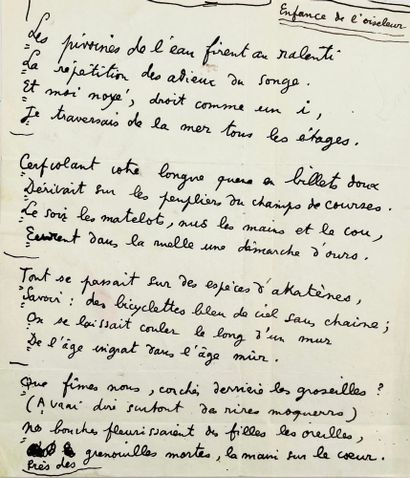 Enfance de l'oiseleur
Les pivoines de l'eau firent au ralenti
La répétition des adieux du songe.
Et moi noyé, droit comme un i,
Je traversais de la mer tous les étages.
Cerfvolant votre longue queue en billets doux
Dérivait sur les peupliers du champs de courses.
Le soir les matelots, nus les mains et le cou,
Eurent dans la ruelle une démarche d'ours.
Tout se passait sur des espèces d'akatènes,
Savoir : des bicyclettes bleu de ciel sans chaine ;
On se laissait couler le long d'un mur
De l'âge ingrat dans l'âge mûr.
Que fîmes nous, cachés derrière les groseilles ?
(A vrai dire surtout des rires moqueurs)
Nos bouches fleurissaient des filles les oreilles,
Près des grenouilles mortes, la main sur le cœur.